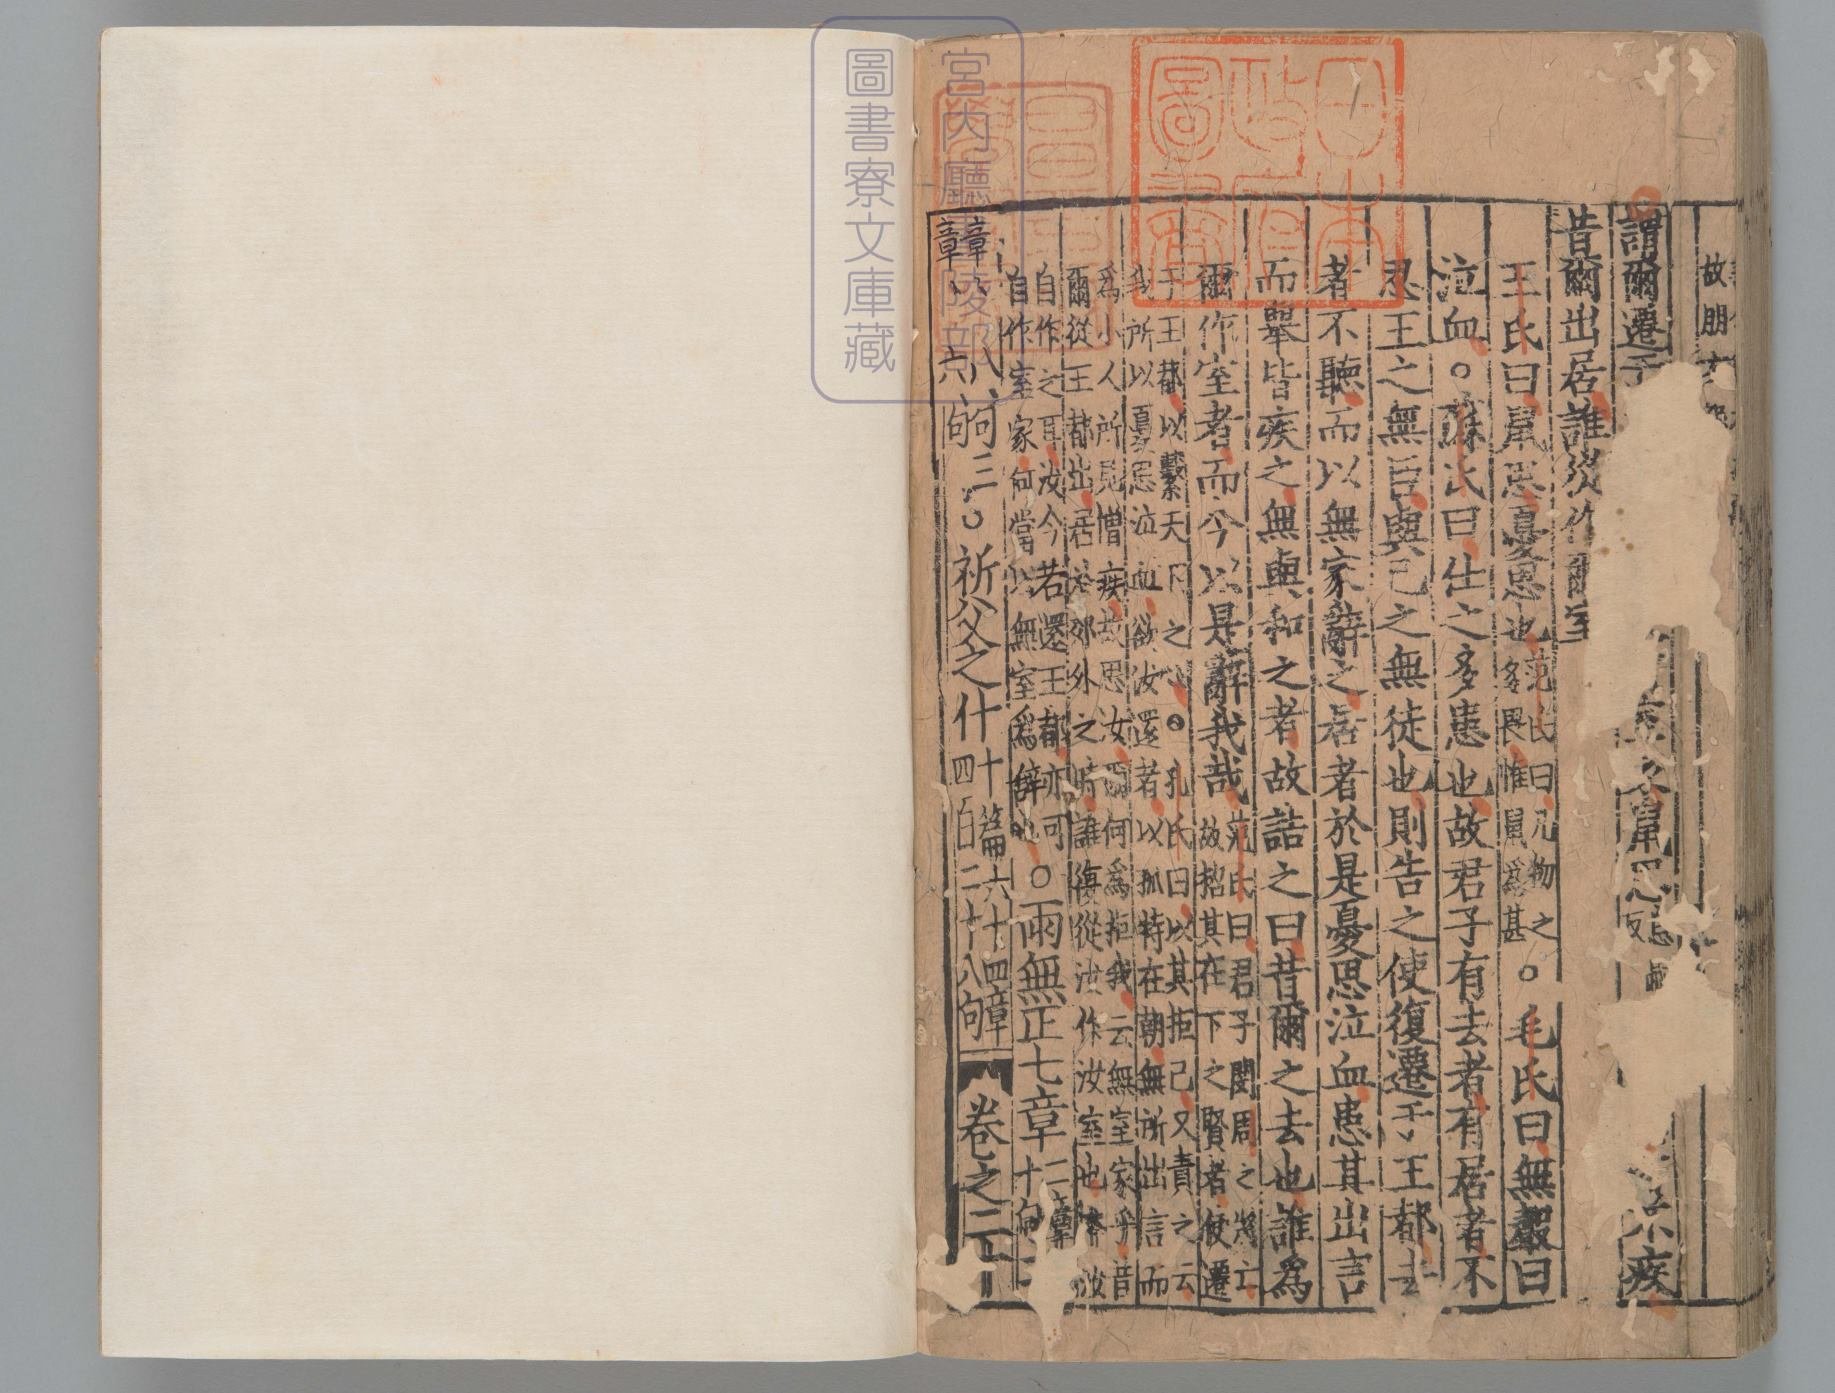 故朋友
謂爾遷于 鼠思 疾
昔爾出居誰從作爾室
王氏曰鼠思憂思也范氏曰凡物之多畏惟鼠爲甚○毛氏曰無聲曰
泣血○蘇氏曰仕之多患也故君子有去者有居者不
忍王之無臣與己之無徒也則告之使復遷于王都去
者不聽而以無家辭之居者於是憂思泣血患其出言
而舉皆疾之無與和之者故詰之曰昔爾之去也誰爲
爾作室者而今以是辭我哉范氏曰君子閔周之將亡故招其在下之賢者使遷
于王都以繫天下之心○孔氏曰以其拒己又責之云我所以憂思泣血欲汝還者以孤特在朝無所出言而
爲小人所見憎疾故思汝爾何爲拒我云無室家乎昔爾從王都出居於郊外之時誰復從汝作汝室也
自作之耳汝今若還王都亦可自作室家何當以無室爲辭也○雨無正七章二章十句二
章章八句三章章六句○祈父之什十篇六十四章四百二十八句
卷之二十
宮內廳書陵部
圖書寮文庫藏
日本政府圖書